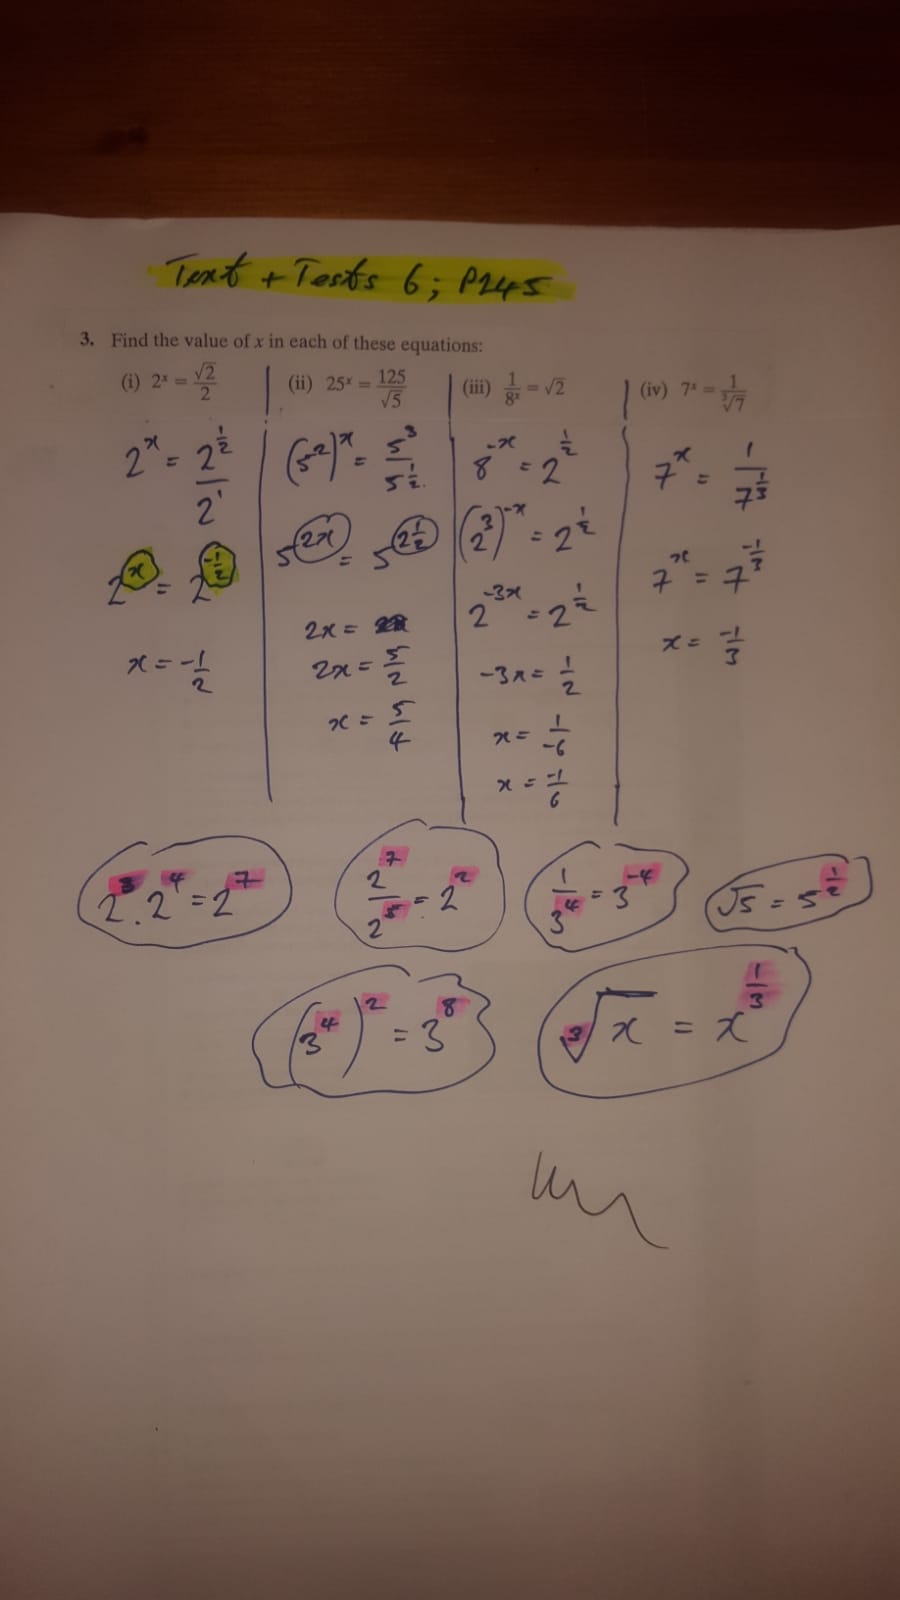 Text + Tests 6; P245
3. Find the value of x in each of these equations:
(i) 2ˣ = √2/2
(ii) 25ˣ = 125/√5
(iii) 1/8ˣ = √2
(iv) 7ˣ = 1/∛7
2^x = 2^(1/2)/2^1
2^x = 2^(-1/2)
x = -1/2
(5^2)^x = 5^3/5^(1/2)
5^(2x) = 5^(2 1/2)
2x =
2x = 5/2
x = 5/4
8^(-x) = 2^(1/2)
(2^3)^(-x) = 2^(1/2)
2^(-3x) = 2^(1/2)
-3x = 1/2
x = 1/-6
x = -1/6
7^x = 1/7^(1/3)
7^x = 7^(-1/3)
x = -1/3
2^3 . 2^4 = 2^7
2^7/2^5 = 2^2
1/3^4 = 3^(-4)
√5 = 5^(1/2)
(3^4)^2 = 3^8
∛x = x^(1/3)